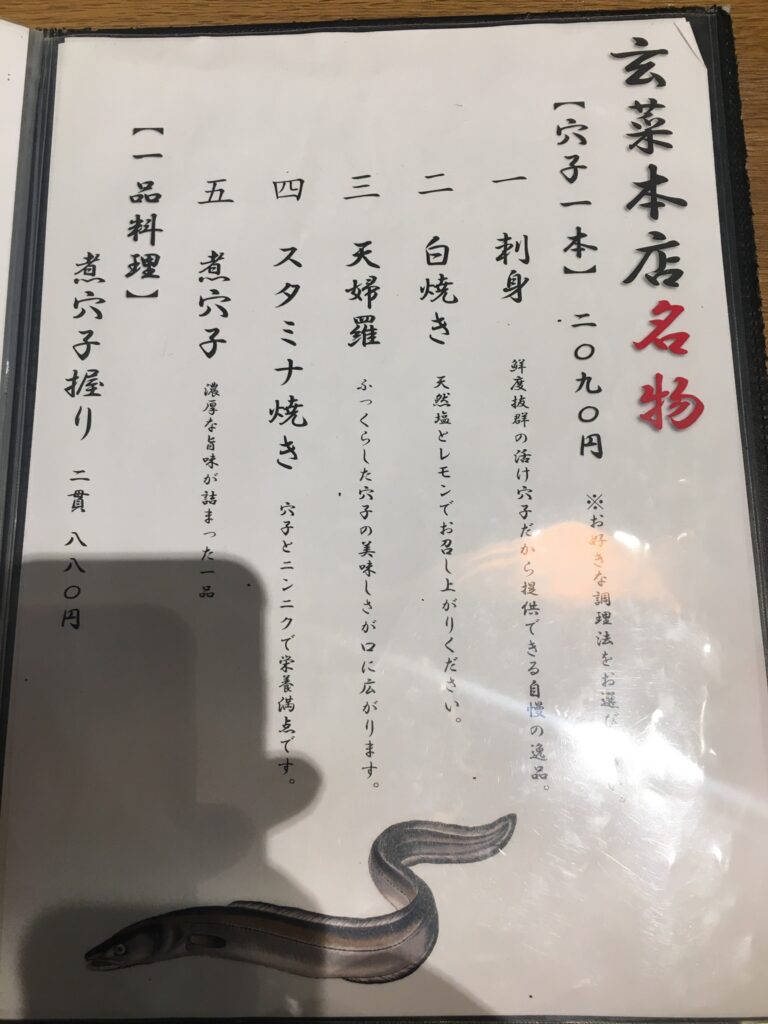 玄菜本店名物
【穴子一本】 二〇九〇円 ※お好きな調理法をお選び
一 刺身 鮮度抜群の活け穴子だから提供できる自慢の逸品。
二 白焼き 天然塩とレモンでお召し上がりください。
三 天婦羅 ふっくらした穴子の美味しさが口に広がります。
四 スタミナ焼き 穴子とニンニクで栄養満点です。
五 煮穴子 濃厚な旨味が詰まった一品
【一品料理】
煮穴子握り 二貫 八八〇円